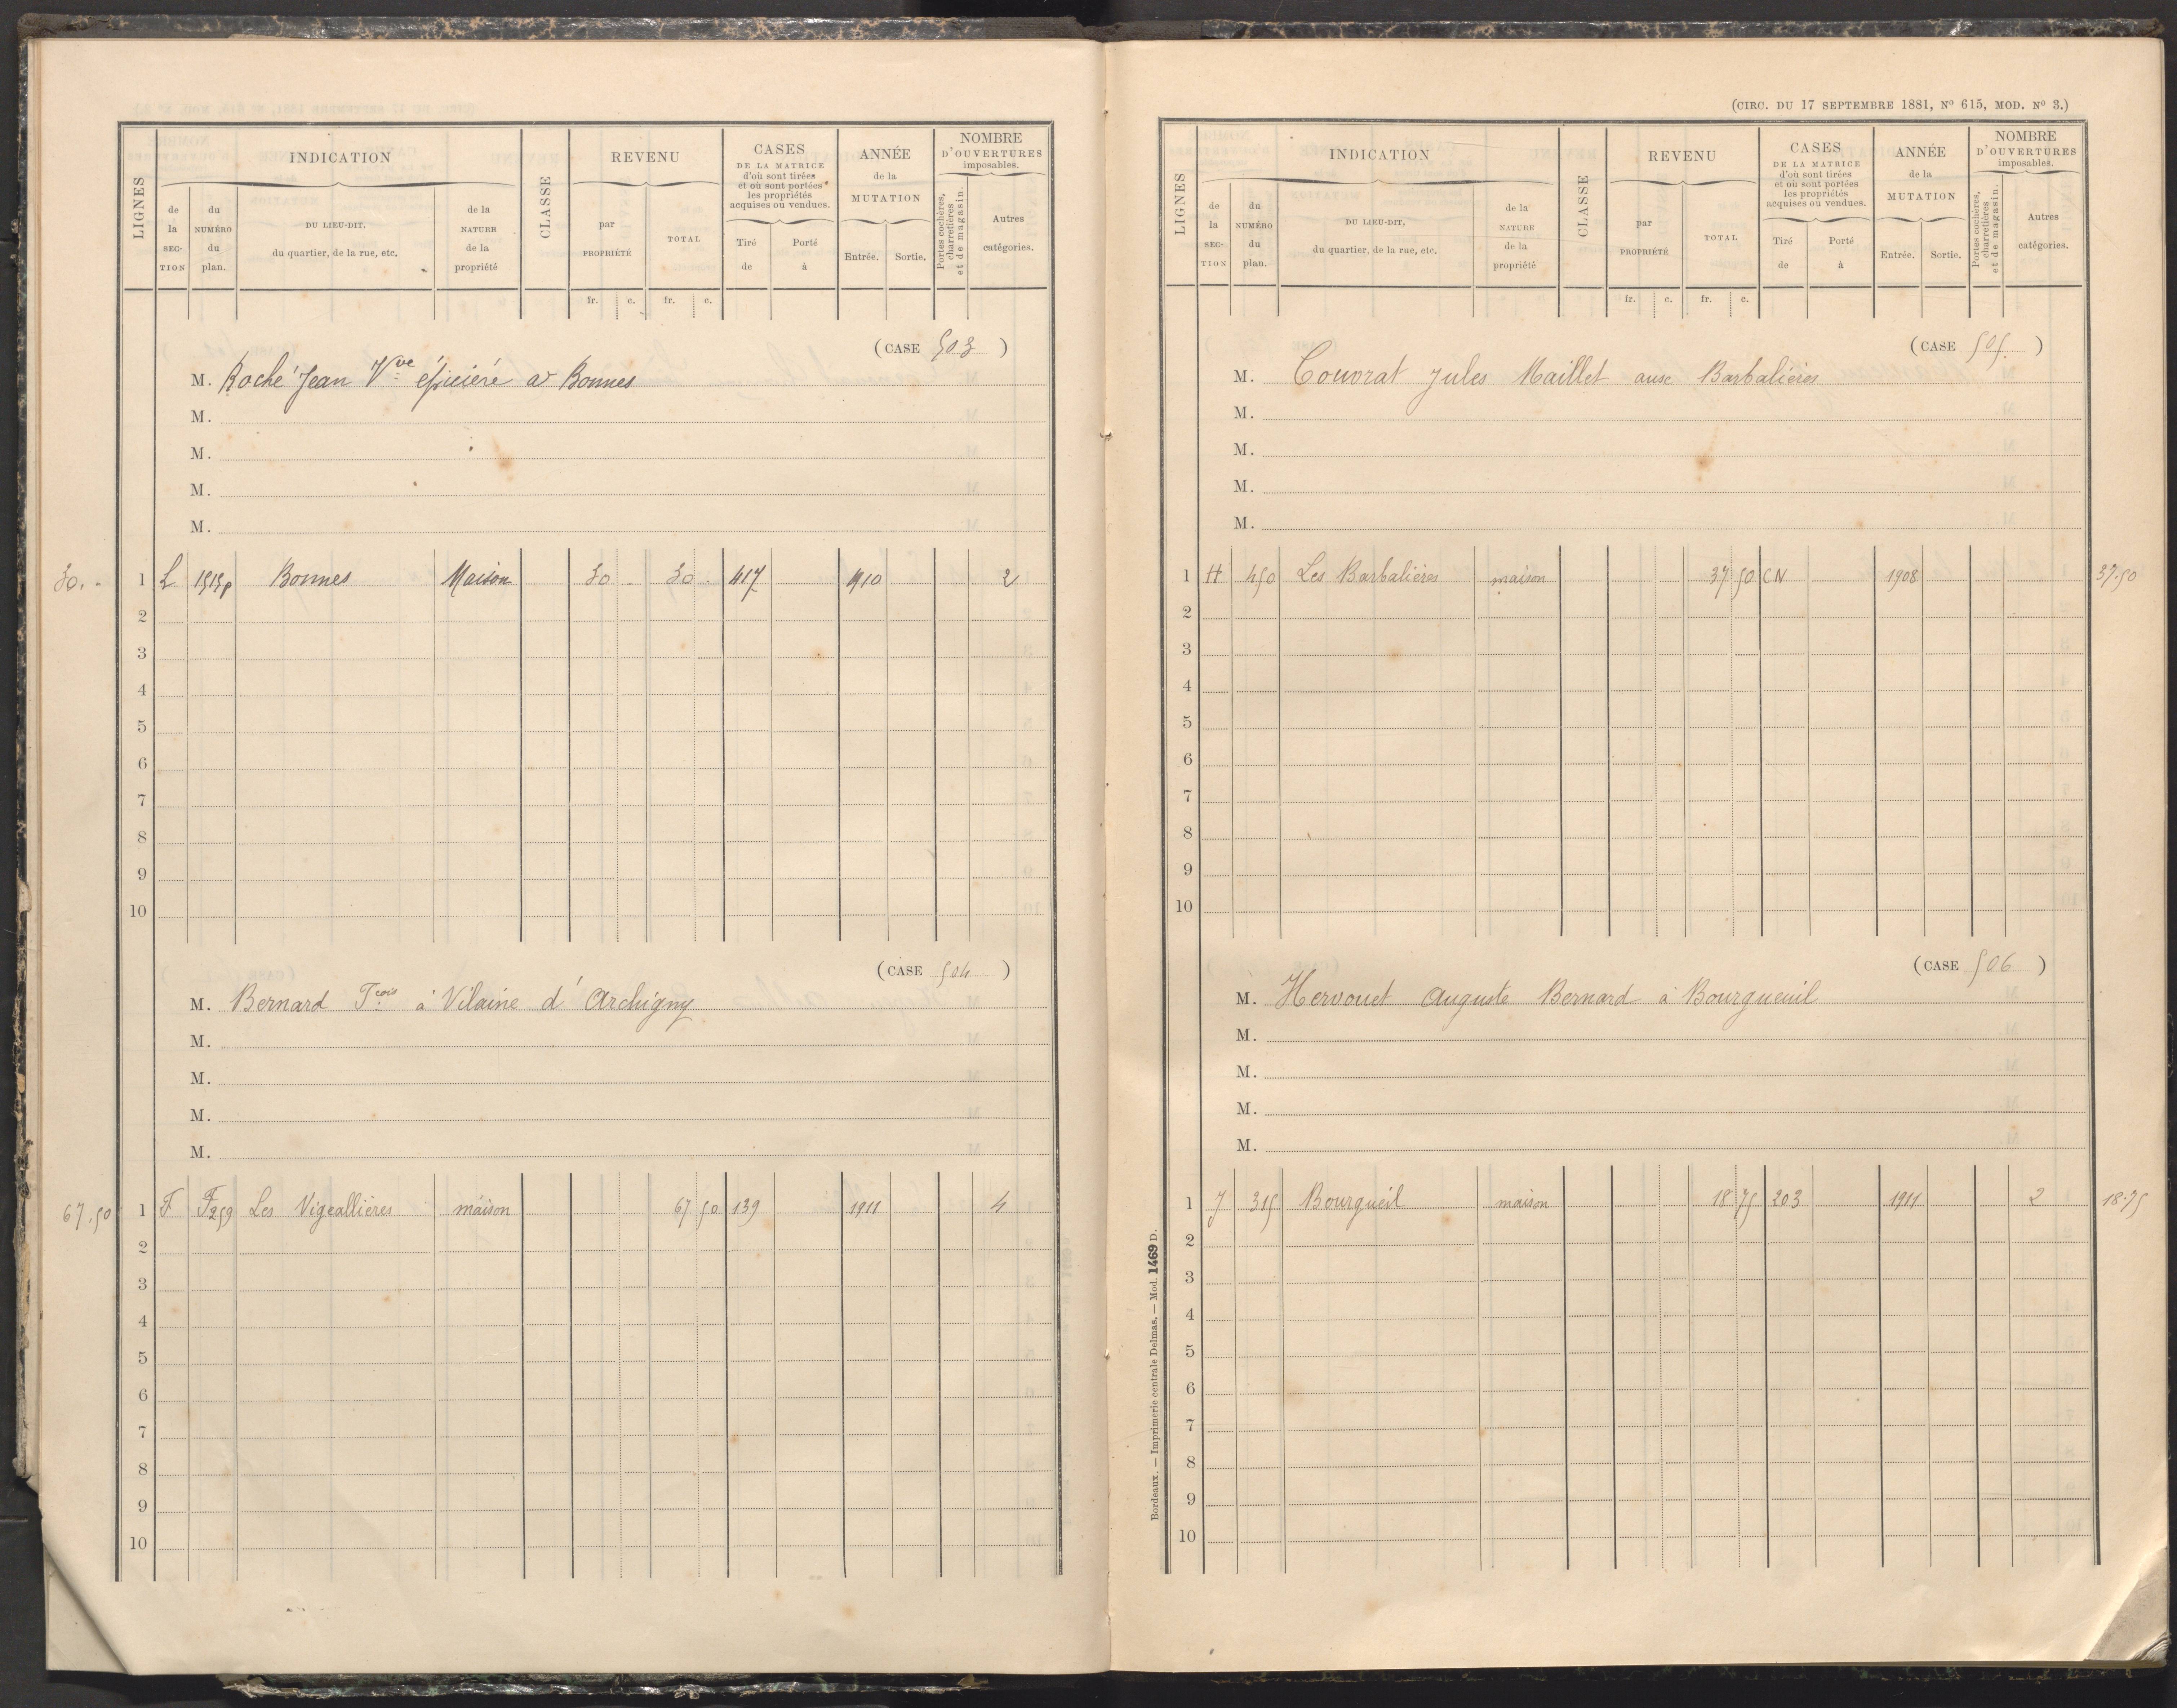 LIGNES
INDICATION
de la SECTION
du NUMÉRO du plan.
DU LIEU-DIT, du quartier, de la rue, etc.
de la NATURE de la propriété
CLASSE
REVENU
par PROPRIÉTÉ
TOTAL
CASES
DE LA MATRICE
d'où sont tirées
et où sont portées
les propriétés
acquises ou vendues.
Tiré de
Porté à
ANNÉE
de la
MUTATION
Entrée.
Sortie.
NOMBRE
D'OUVERTURES
imposables.
Portes cochères, charretières et de magasin.
Autres catégories.
fr. c. fr. c.
(CASE 503 )
M. Roché Jean Vve épicière à Bonnes
M.
M.
M.
M.
30. - 1 L 1515p Bonnes Maison 30 - 30 - 417 1910 2
2
3
4
5
6
7
8
9
10
(CASE 504 )
M. Bernard Fcois à Vilaine d'Archigny
M.
M.
M.
M.
67.50 1 F F259 Les Vigeallières maison 67 50 139 1911 4
2
3
4
5
6
7
8
9
10
(CIRC. DU 17 SEPTEMBRE 1881, Nº 615, MOD. Nº 3.)
LIGNES
INDICATION
de la SECTION
du NUMÉRO du plan.
DU LIEU-DIT, du quartier, de la rue, etc.
de la NATURE de la propriété
CLASSE
REVENU
par PROPRIÉTÉ
TOTAL
CASES
DE LA MATRICE
d'où sont tirées
et où sont portées
les propriétés
acquises ou vendues.
Tiré de
Porté à
ANNÉE
de la
MUTATION
Entrée.
Sortie.
NOMBRE
D'OUVERTURES
imposables.
Portes cochères, charretières et de magasin.
Autres catégories.
fr. c. fr. c.
(CASE 505 )
M. Couvrat Jules Maillet aux Barbalières
M.
M.
M.
M.
1 H 450 Les Barbalières maison 37 50 CN 1908 37.50
2
3
4
5
6
7
8
9
10
(CASE 506 )
M. Hervouet Auguste Bernard à Bourgueuil
M.
M.
M.
M.
1 J 315 Bourgueil maison 18 75 203 1911 2 18.75
2
3
4
5
6
7
8
9
10
Bordeaux. — Imprimerie centrale Delmas. — Mod. 1469 D.